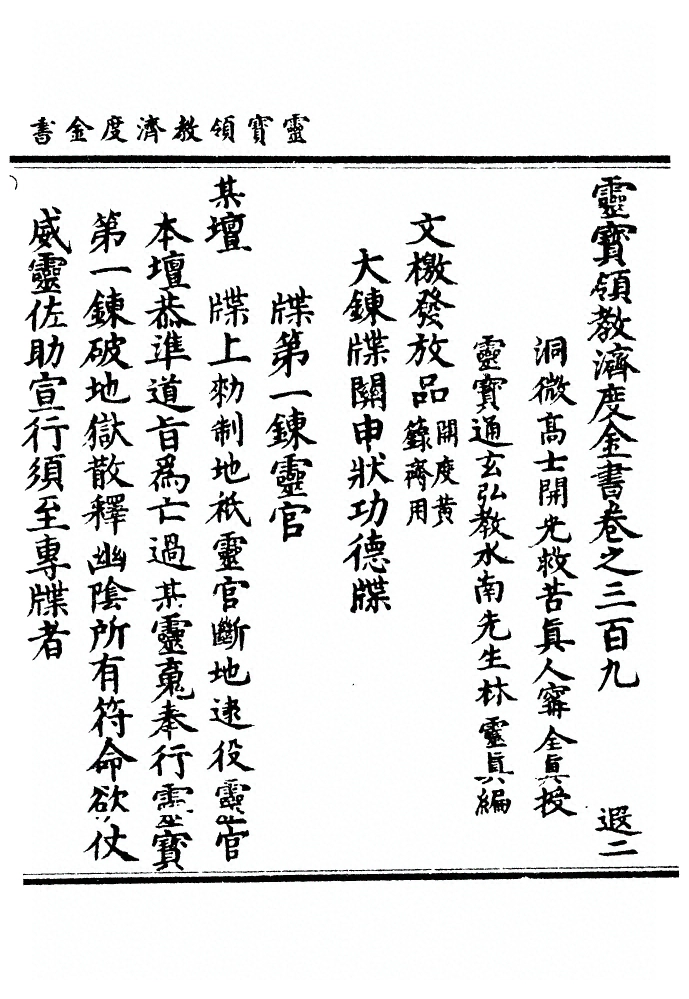 靈寶領教濟度金書
靈寶領教濟度金書卷之三百九 遐二
洞微高士開光救苦眞人寗全眞授
靈寶通玄弘教水南先生林靈眞編
文檄發放品 開度黃籙齋用
大鍊牒關申狀功德牒
牒第一鍊靈官
某壇 牒上勑制地祇靈官斷地逮役靈官
本壇恭準道旨爲亡過某靈䰟奉行靈寶
第一鍊破地獄散釋幽陰所有符命欲仗
威靈佐助宣行須至專牒者